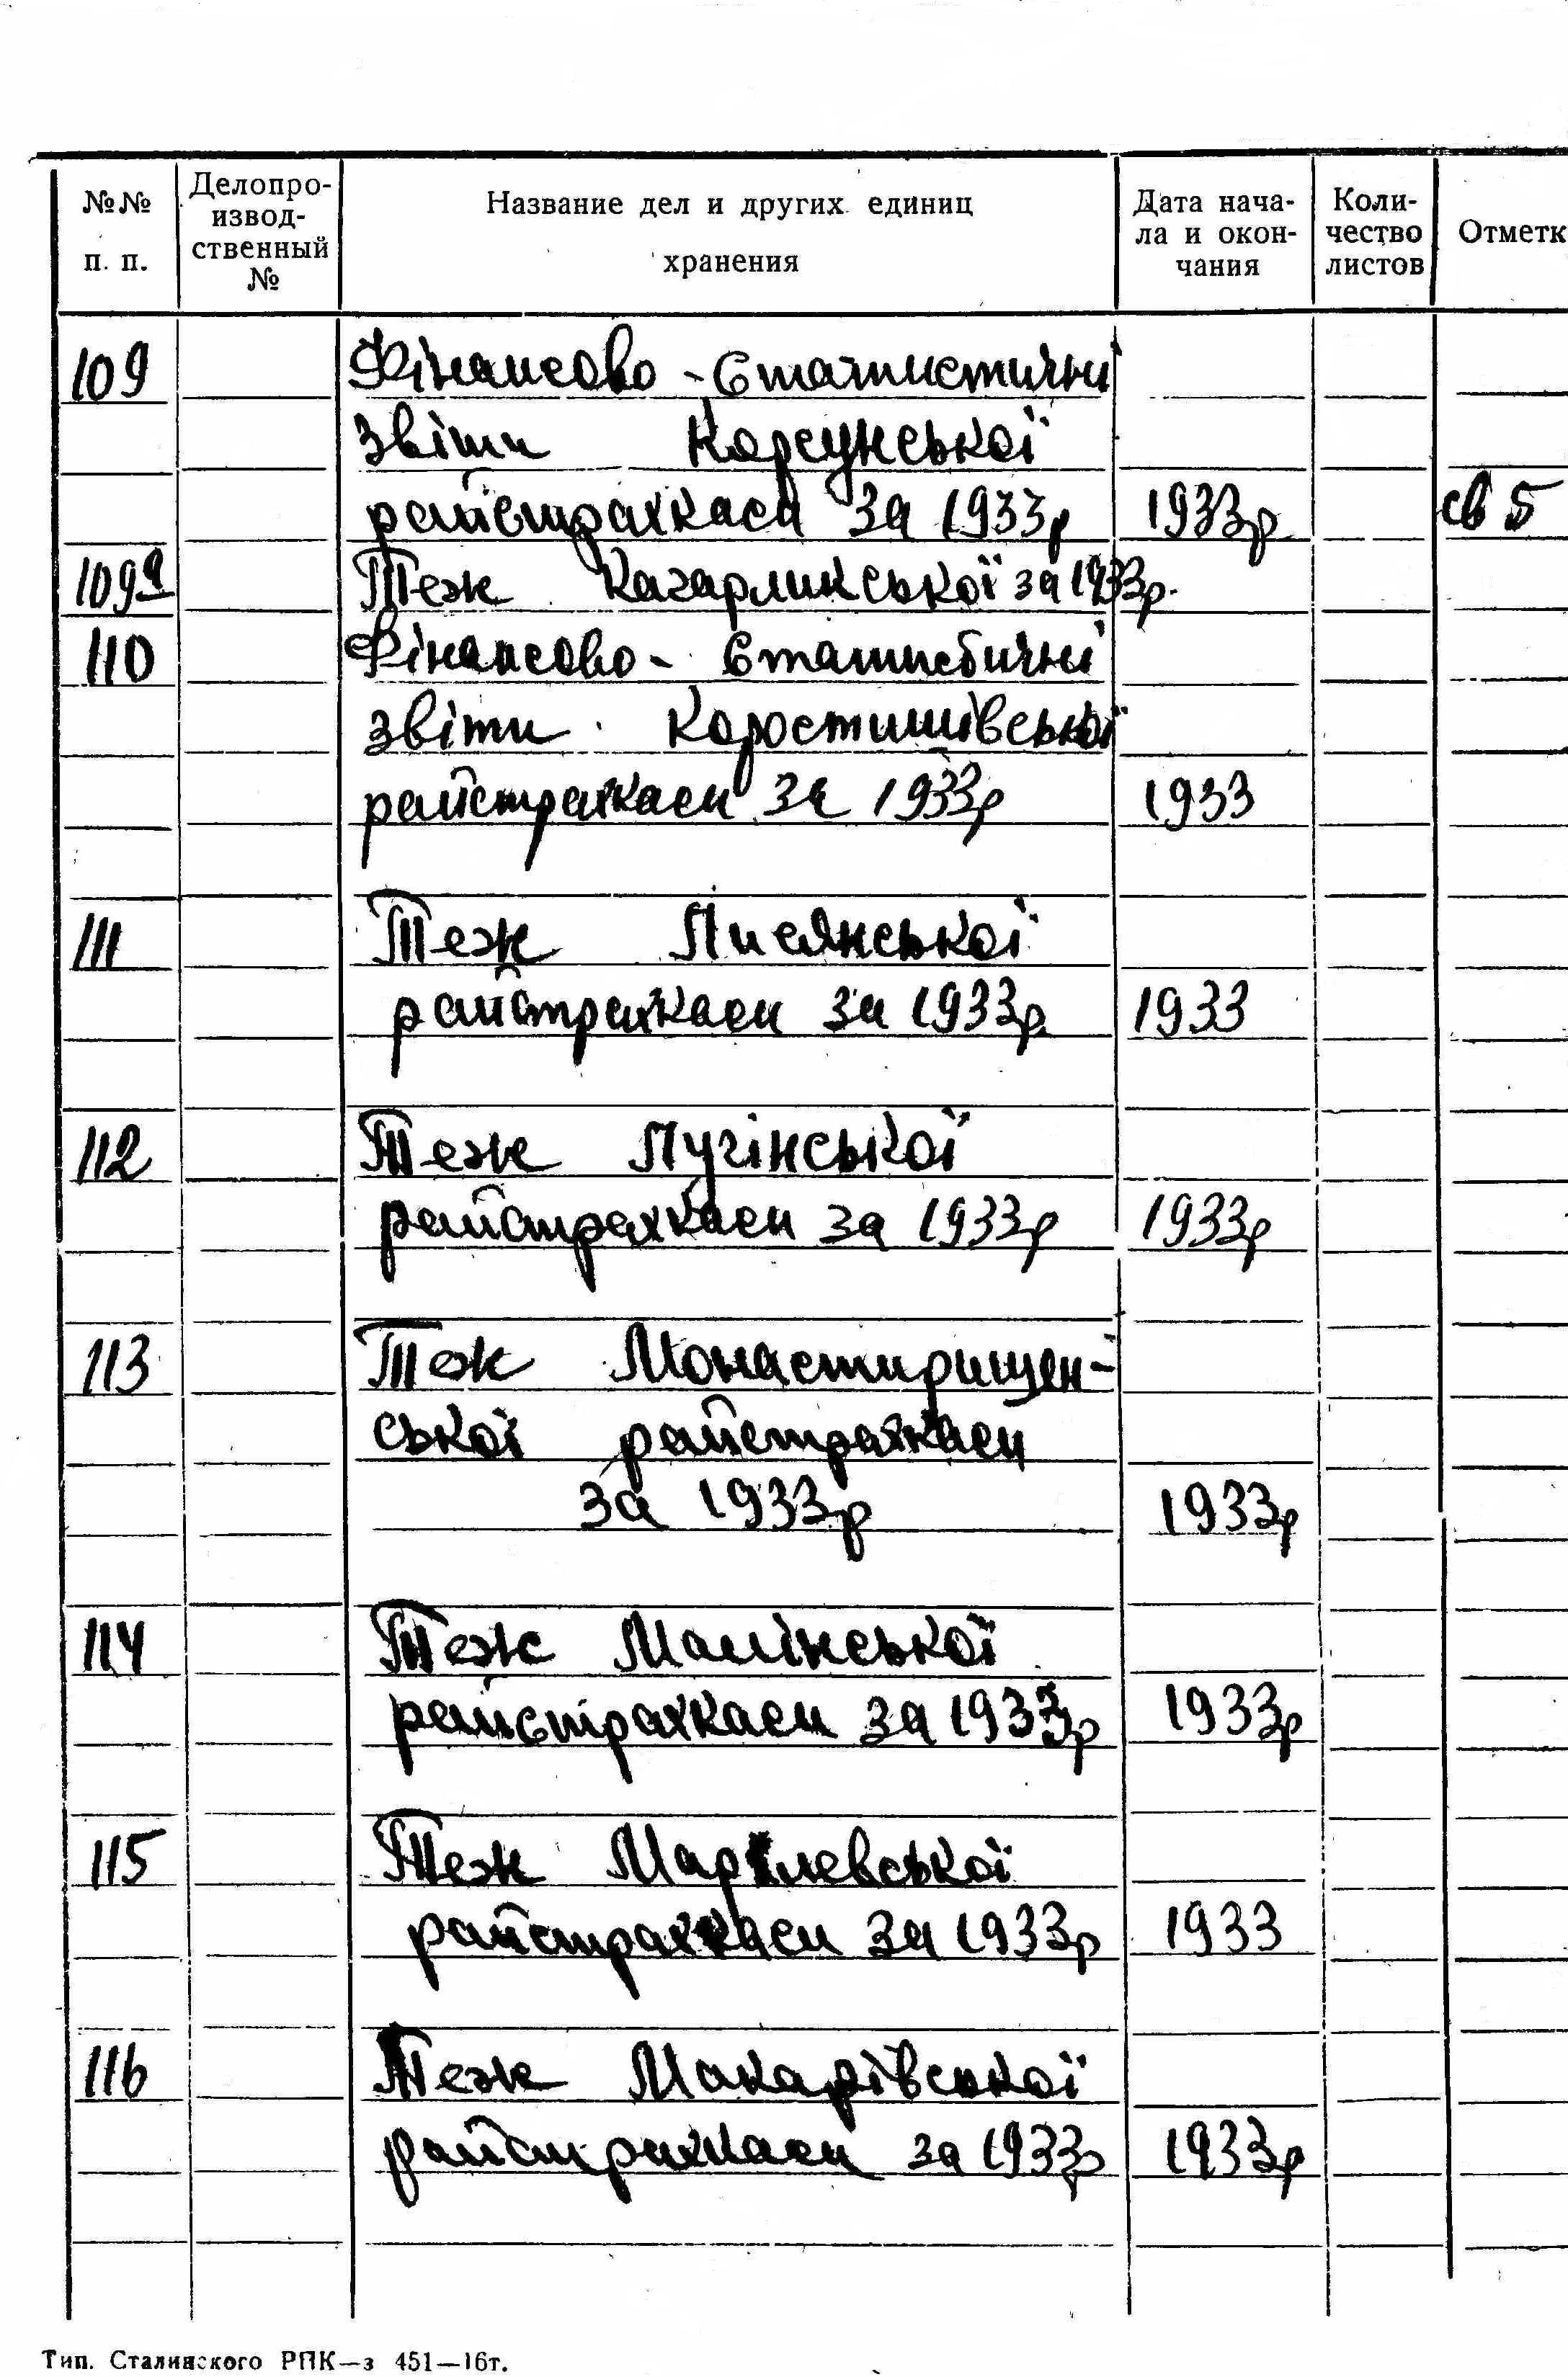 №№ п. п. Делопро-извод-ственный № Название дел и других единиц хранения Дата нача-ла и окон-чания Коли-чество листов Отметк
109 Фінансово - статистичні
звіти Корсунської
райстрахкаси за 1933р 1933р св 5
109а Теж Кагарликської за 1933р.
110 Фінансово - статистичні
звіти Коростишівської
райстрахкаси за 1933р 1933
111 Теж Лисянської
райстрахкаси за 1933р. 1933
112 Теж Лугінської
райстрахкаси за 1933р 1933р
113 Теж Монастирищен-
ської райстрахкаси
за 1933р 1933р
114 Теж Малінської
райстрахкаси за 1933р 1933р
115 Теж
райстрахкаси за 1933р 1933
116 Теж Макарівської
райстрахкаси за 1933р 1933р
Тип. Сталинского РПК—з 451—16т.